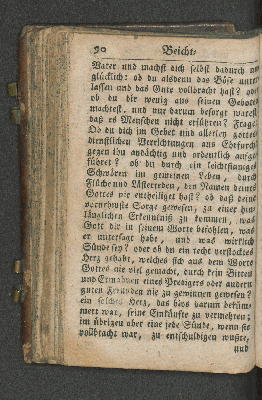 90 Beicht-
Vater und machst dich selbst dadurch un-
glücklich: ob du alsdenn das Böse unter-
lassen und das Gute vollbracht hast? oder
ob du dir wenig aus seinen Geboten
machtest, und nur darum besorgt warest,
daß es Menschen nicht erführen? Frage:
Ob du dich im Gebet und allerley gottes-
dienstlichen Verrichtungen aus Ehrfurcht
gegen ihn andächtig und ordentlich aufge-
führet? ob du durch ein leichtsinniges
Schwören im gemeinen Leben, durch
Flüche und Lästereden, den Namen deines
Gottes nie entheiliget hast? ob daß deine
vornehmste Sorge gewesen, zu einer hin-
länglichen Erkenntniß zu kommen, was
Gott dir in seinem Worte befohlen, was
er untersagt habt, und was wirklich
Sünde sey? oder ob du ein recht verstocktes
Herz gehabt, welches sich aus dem Worte
Gottes nie viel gemacht, durch kein Bitten
und Ermahnen eines Predigers oder andern
guten Freunden nie zu gewinnen gewesen?
ein solches Herz, das blos darum beküm-
mert war, seine Einkünfte zu vermehren;
im übrigen aber eine jede Sünde, wenn sie
vollbracht war, zu entschuldigen wußte,
und